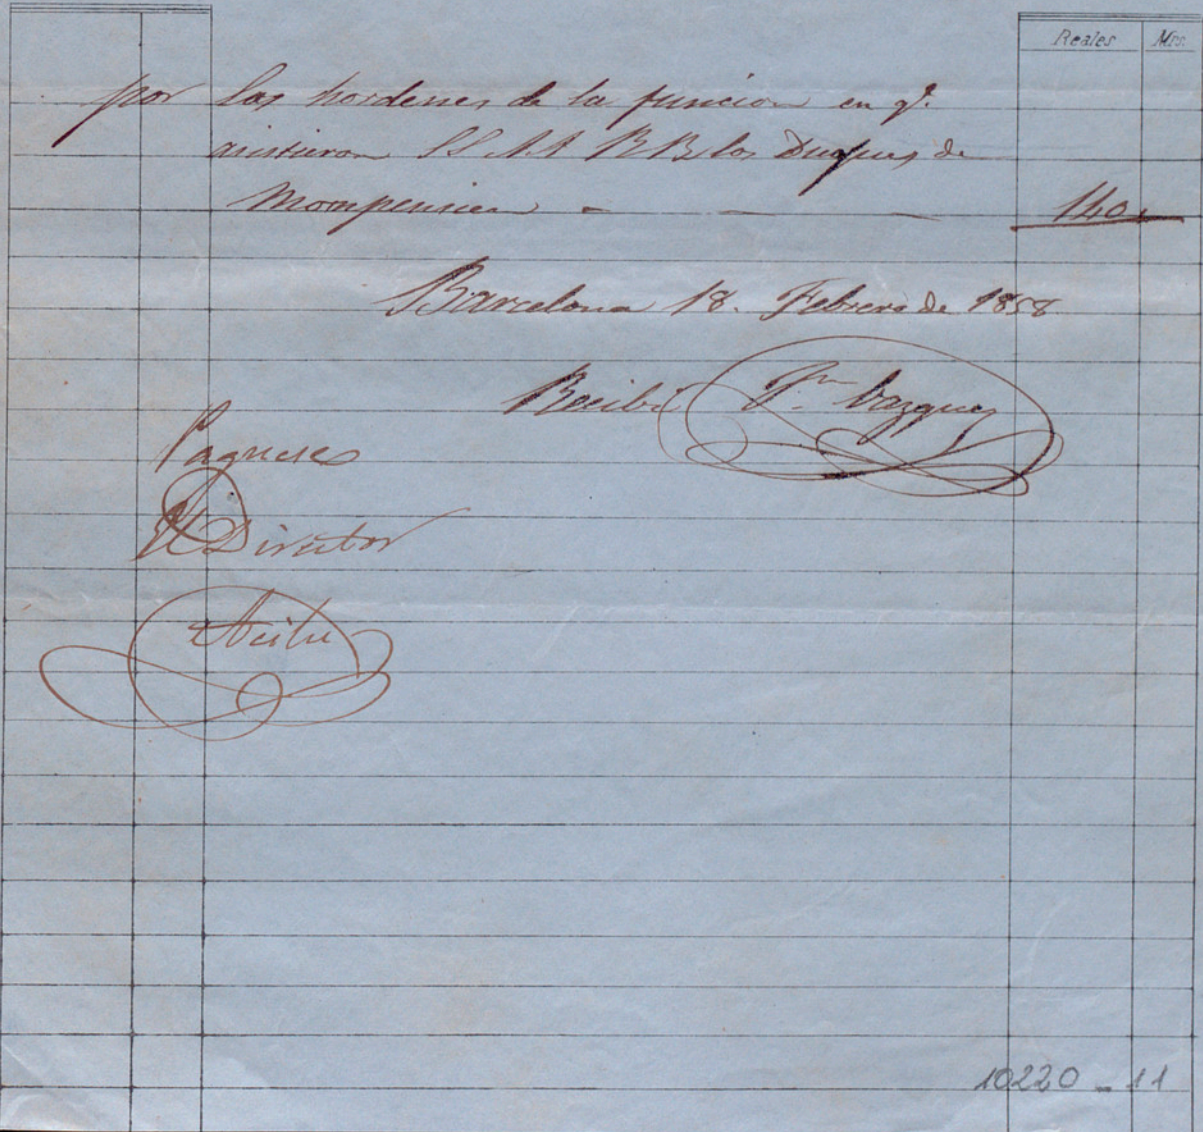 Reales Mrs.
por las hordenes de la funcion en qe.
asistieron SS AA RR los Duques de
Mompensier - - - 140
Barcelona 18. Febrero de 1858
Recibi Vazquez
Paguese
El Director
10220-11